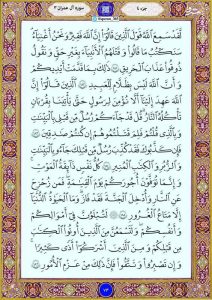 جزء ٤
سورة آل عمران ٣
لَقَدْ سَمِعَ اللَّهُ قَوْلَ الَّذِينَ قَالُوا إِنَّ اللَّهَ فَقِيرٌ وَنَحْنُ أَغْنِيَاءُ
سَنَكْتُبُ مَا قَالُوا وَقَتْلَهُمُ الْأَنْبِيَاءَ بِغَيْرِ حَقٍّ وَنَقُولُ
ذُوقُوا عَذَابَ الْحَرِيقِ ذَٰلِكَ بِمَا قَدَّمَتْ أَيْدِيكُمْ
وَأَنَّ اللَّهَ لَيْسَ بِظَلَّامٍ لِلْعَبِيدِ الَّذِينَ قَالُوا إِنَّ
اللَّهَ عَهِدَ إِلَيْنَا أَلَّا نُؤْمِنَ لِرَسُولٍ حَتَّىٰ يَأْتِيَنَا بِقُرْبَانٍ
تَأْكُلُهُ النَّارُ قُلْ قَدْ جَاءَكُمْ رُسُلٌ مِنْ قَبْلِي بِالْبَيِّنَاتِ
وَبِالَّذِي قُلْتُمْ فَلِمَ قَتَلْتُمُوهُمْ إِنْ كُنْتُمْ صَادِقِينَ
فَإِنْ كَذَّبُوكَ فَقَدْ كُذِّبَ رُسُلٌ مِنْ قَبْلِكَ جَاءُوا بِالْبَيِّنَاتِ
وَالزُّبُرِ وَالْكِتَابِ الْمُنِيرِ كُلُّ نَفْسٍ ذَائِقَةُ الْمَوْتِ
وَإِنَّمَا تُوَفَّوْنَ أُجُورَكُمْ يَوْمَ الْقِيَامَةِ فَمَنْ زُحْزِحَ
عَنِ النَّارِ وَأُدْخِلَ الْجَنَّةَ فَقَدْ فَازَ وَمَا الْحَيَاةُ الدُّنْيَا
إِلَّا مَتَاعُ الْغُرُورِ لَتُبْلَوُنَّ فِي أَمْوَالِكُمْ
وَأَنْفُسِكُمْ وَلَتَسْمَعُنَّ مِنَ الَّذِينَ أُوتُوا الْكِتَابَ
مِنْ قَبْلِكُمْ وَمِنَ الَّذِينَ أَشْرَكُوا أَذًى كَثِيرًا
وَإِنْ تَصْبِرُوا وَتَتَّقُوا فَإِنَّ ذَٰلِكَ مِنْ عَزْمِ الْأُمُورِ